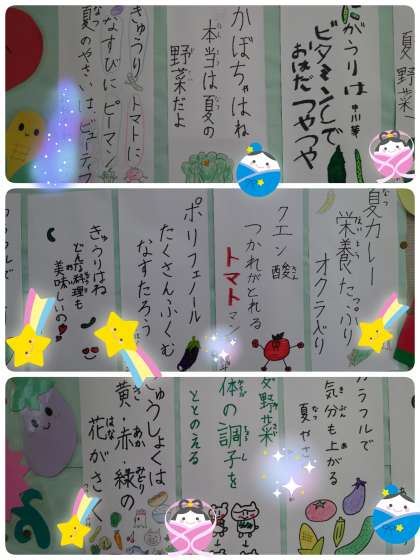 夏野菜
がうりは
ビタミンCで
おはだつやつや
かぼちゃはね
本当は夏の
野菜だよ
きゅうり トマトに
なすびにピーマン
夏のやさいは ビューティフ
夏カレー
栄養たっぷり
オクラいり
クエン酸
つかれがとれる
トマトマン
ポリフェノール
たくさんふくむ
なすたろう
きゅうりはね
どんな料理も
美味しいの
ラフルで
気分も上がる
夏やさい
野菜
体の調子を
ととのえる
ゅうしょくは
黄・赤・緑の
花がさく